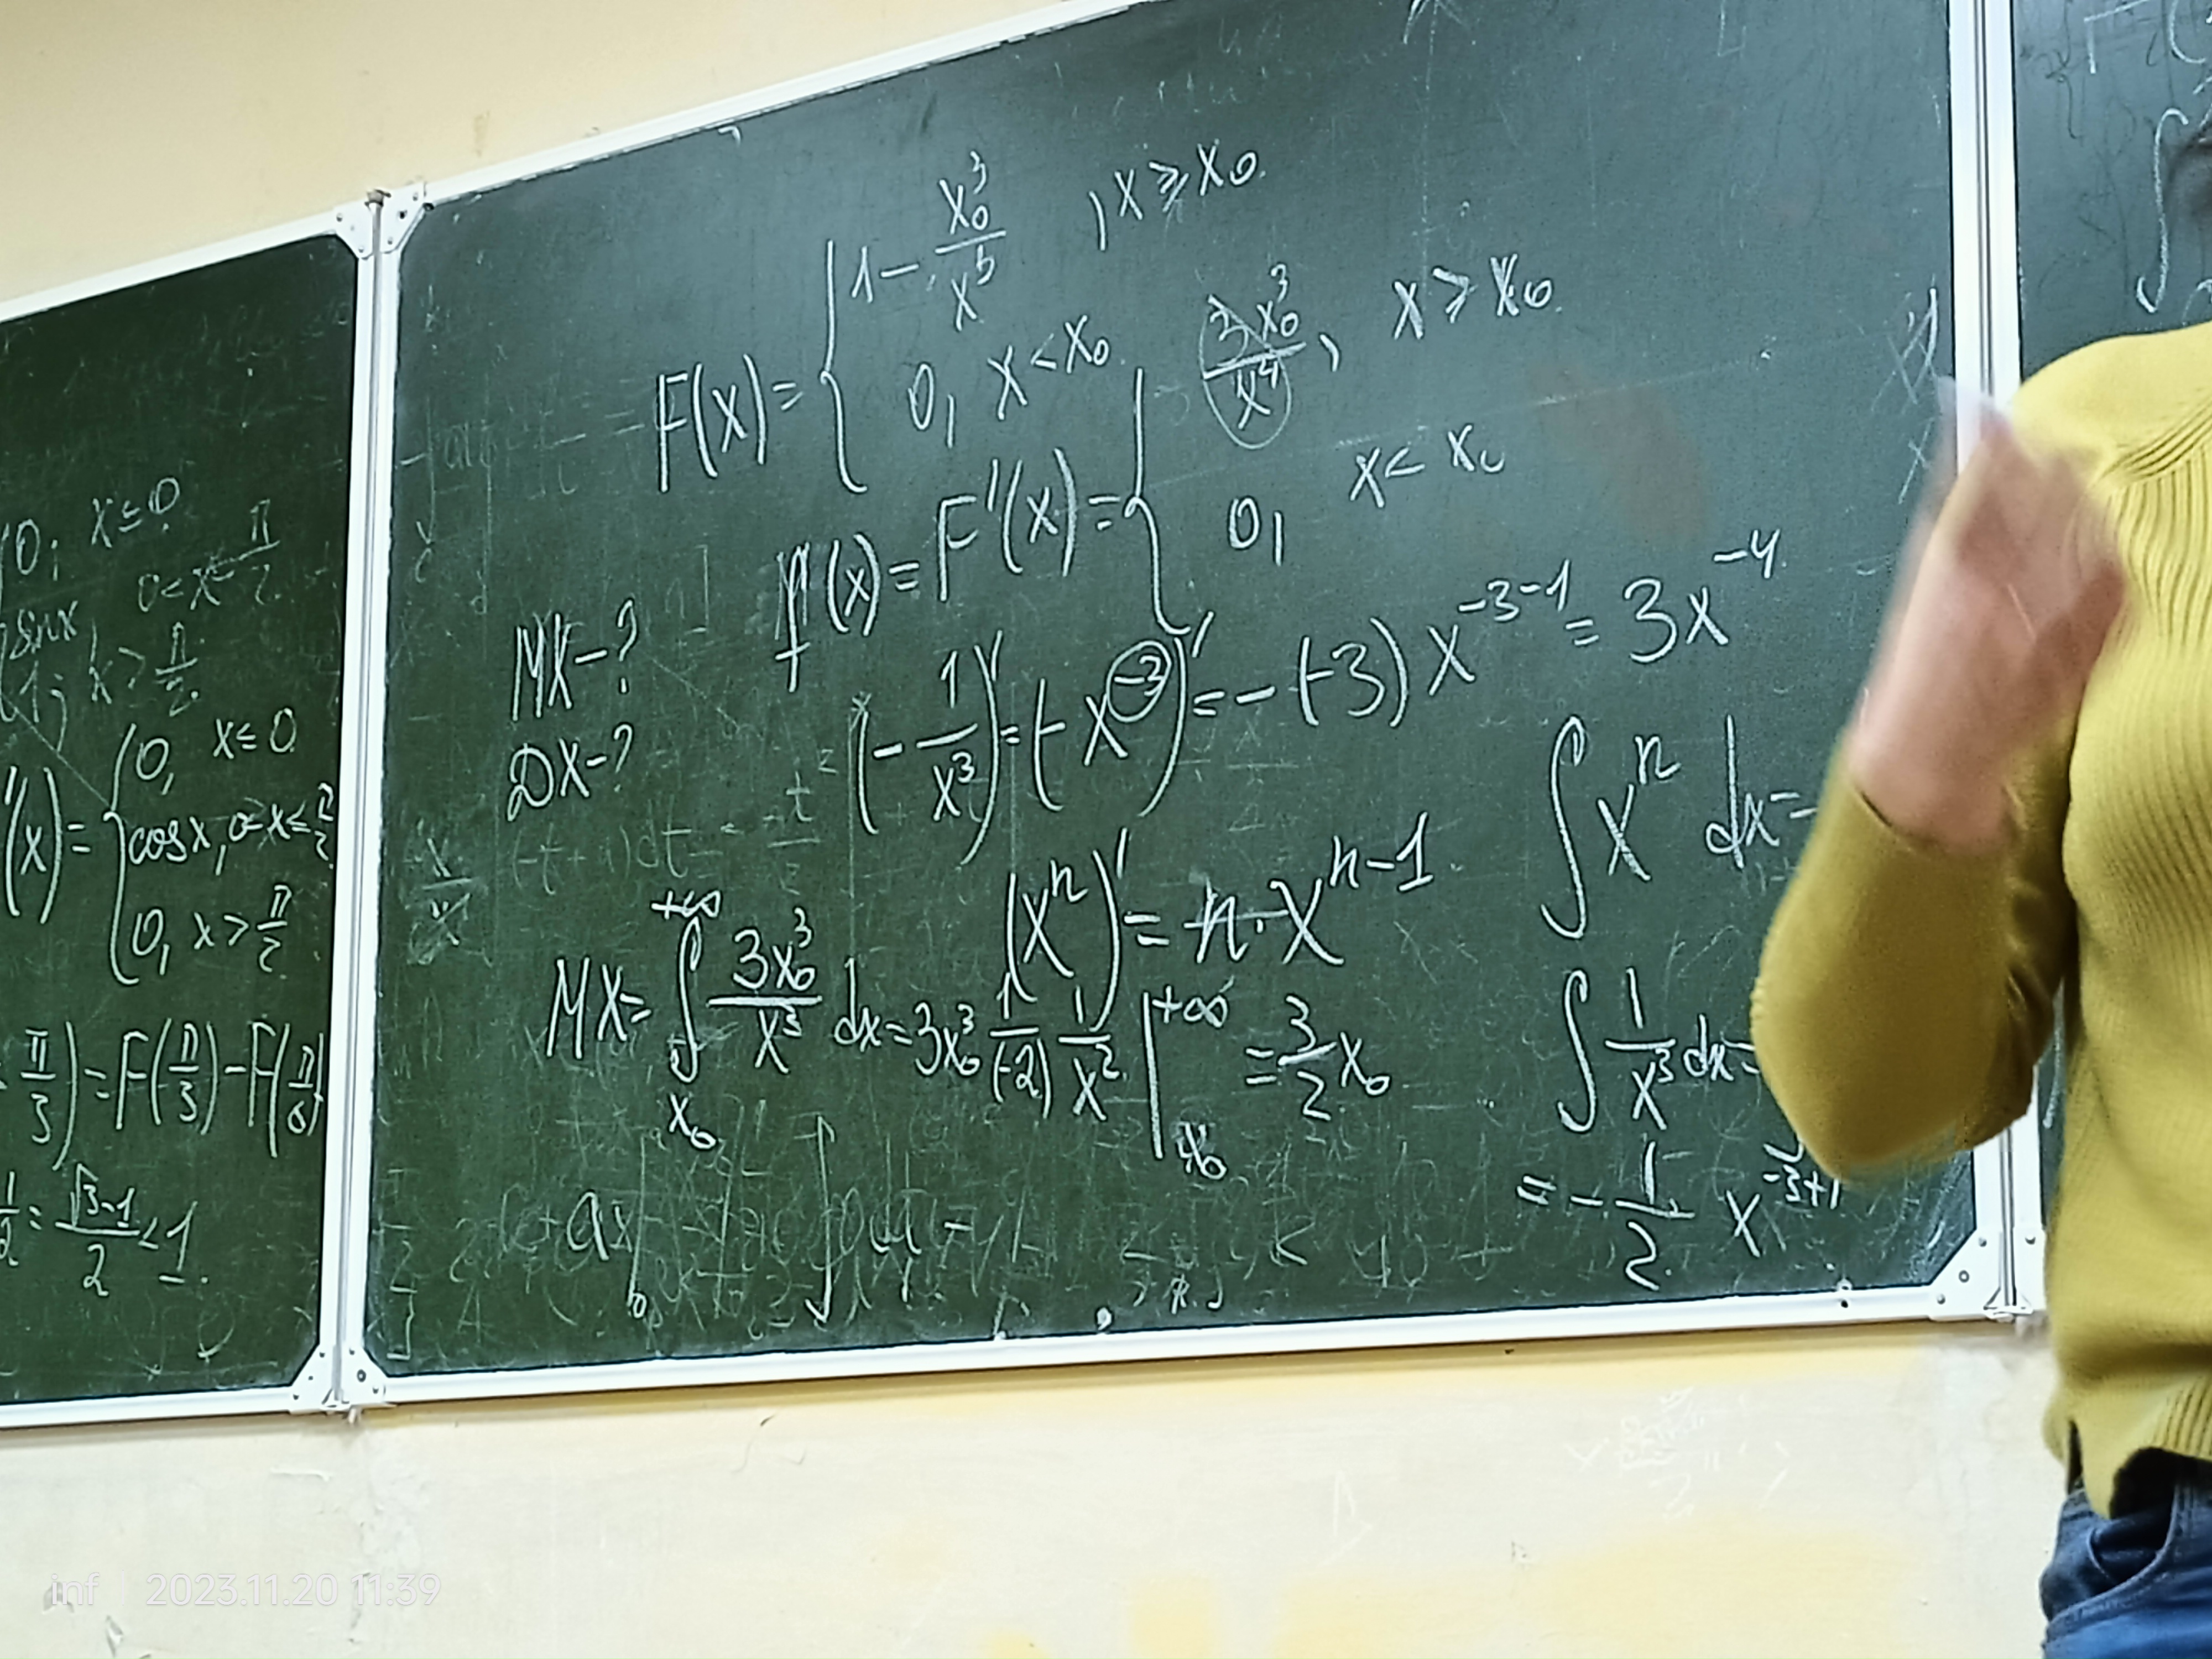 0, x ≤ 0
sin x, 0 < x ≤ π/2
1, x > π/2
'(x) = { 0, x ≤ 0
cos x, 0 < x ≤ π/2
0, x > π/2
π/3) = F(π/3) - F(π/6)
1/2 = (√3-1)/2 < 1.
F(x) = { 1 - x₀³/x³, x ≥ x₀
0, x < x₀
f(x) = F'(x) = { 3x₀³/x⁴, x ≥ x₀
0, x < x₀
MX - ?
DX - ?
(-1/x³)' = (-x⁻³)' = -(-3) x⁻³⁻¹ = 3x⁻⁴
(xⁿ)' = n·xⁿ⁻¹
MX = ∫_{x₀}^{+∞} 3x₀³/x³ dx = 3x₀³ 1/(-2) 1/x² |_{x₀}^{+∞} = 3/2 x₀
∫ xⁿ dx =
∫ 1/x³ dx =
= - 1/2 x⁻³⁺¹
inf 2023.11.20 11:39